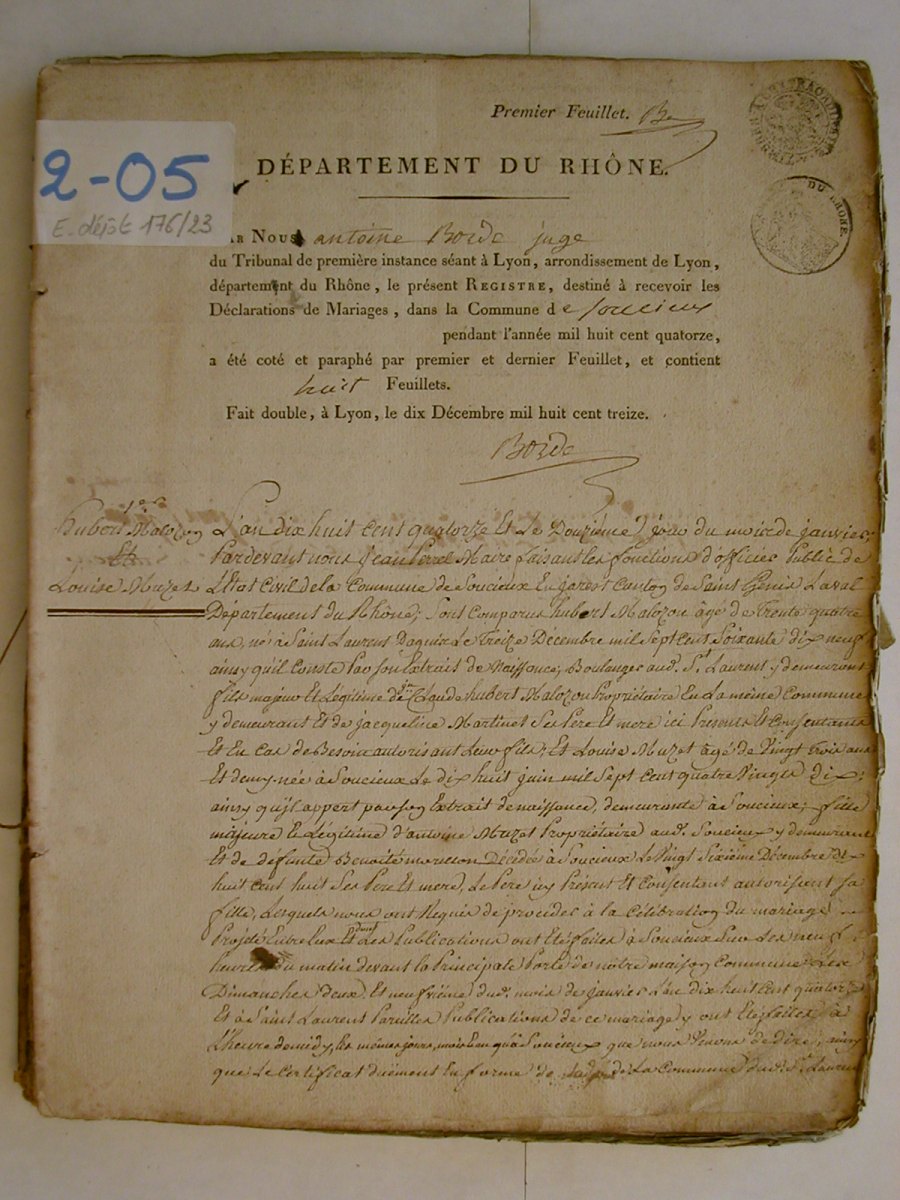 Premier Feuillet. Be
2-05
E. dépôt 176/23
DÉPARTEMENT DU RHÔNE.
DU RHÔNE.
PAR NOUS antoine Borde juge
du Tribunal de première instance séant à Lyon, arrondissement de Lyon,
département du Rhône, le présent REGISTRE, destiné à recevoir les
Déclarations de Mariages, dans la Commune de soucieux
pendant l'année mil huit cent quatorze,
a été coté et paraphé par premier et dernier Feuillet, et contient
huit Feuillets.
Fait double, à Lyon, le dix Décembre mil huit cent treize.
Borde
1er
hubert Malozon
Et
Louise Muzet
L'an dix huit cent quatorze Et Le Douzième jour du mois de janvier,
Pardevant nous Maire faisant les fonctions d'officier Public de
L'Etat Civil de la Commune de Soucieux En jarest Canton de Saint Genis Laval
Département du Rhône; sont comparus hubert Malozon âgé de trente quatre
ans, né à Saint Laurent Dagnix Le Treize Décembre mil sept cent Soixante dix neuf
ainsy qu'il Conste Par son Extrait de Naissance, Boulanger aud. St Laurent y demeurant
fils majeur Et Légitime de Claude hubert Malozon Propriétaire En La même Commune
y demeurant Et de jacqueline Martinet Ses Père Et mere ici Présents Et Consentants
Et En Cas de Besoin autorisant Leur fils; Et Louise Muzet agé de Vingt Trois ans
Et demy née à Soucieux Le dix huit juin mil Sept Cent quatre Vingts dix,
ainsy qu'il appert par son Extrait de naissance, demeurante à Soucieux, fille
majeure Et Légitime d'antoine Muzet Propriétaire aud. Soucieux y demeurant
Et de défunte Benoite Décédée à Soucieux Le Vingt Sixième Décembre dix
huit cent huit Ses Pere Et mere, Le Pere icy Présent Et Consentant autorisent sa
fille, Lesquels nous ont Requis de procéder à la Célébration du mariage
Projeté Entre Eux Et dont Les Publications ont Eté faites à Soucieux Sur Les neuf
heures du matin devant la Principale Porte de nôtre maison Commune Les
Dimanches deux Et neufvième dud. mois de janvier L'an dix huit Cent quatorze
Et à Saint Laurent Pareilles Publications de ce mariage y ont Eté faites à
L'heure de midy, les mêmes jours, mois Et an qu'à Soucieux que nous Venons de dire, ainsy
que Le Certificat duëment En forme de La Commune dud. St Laurent